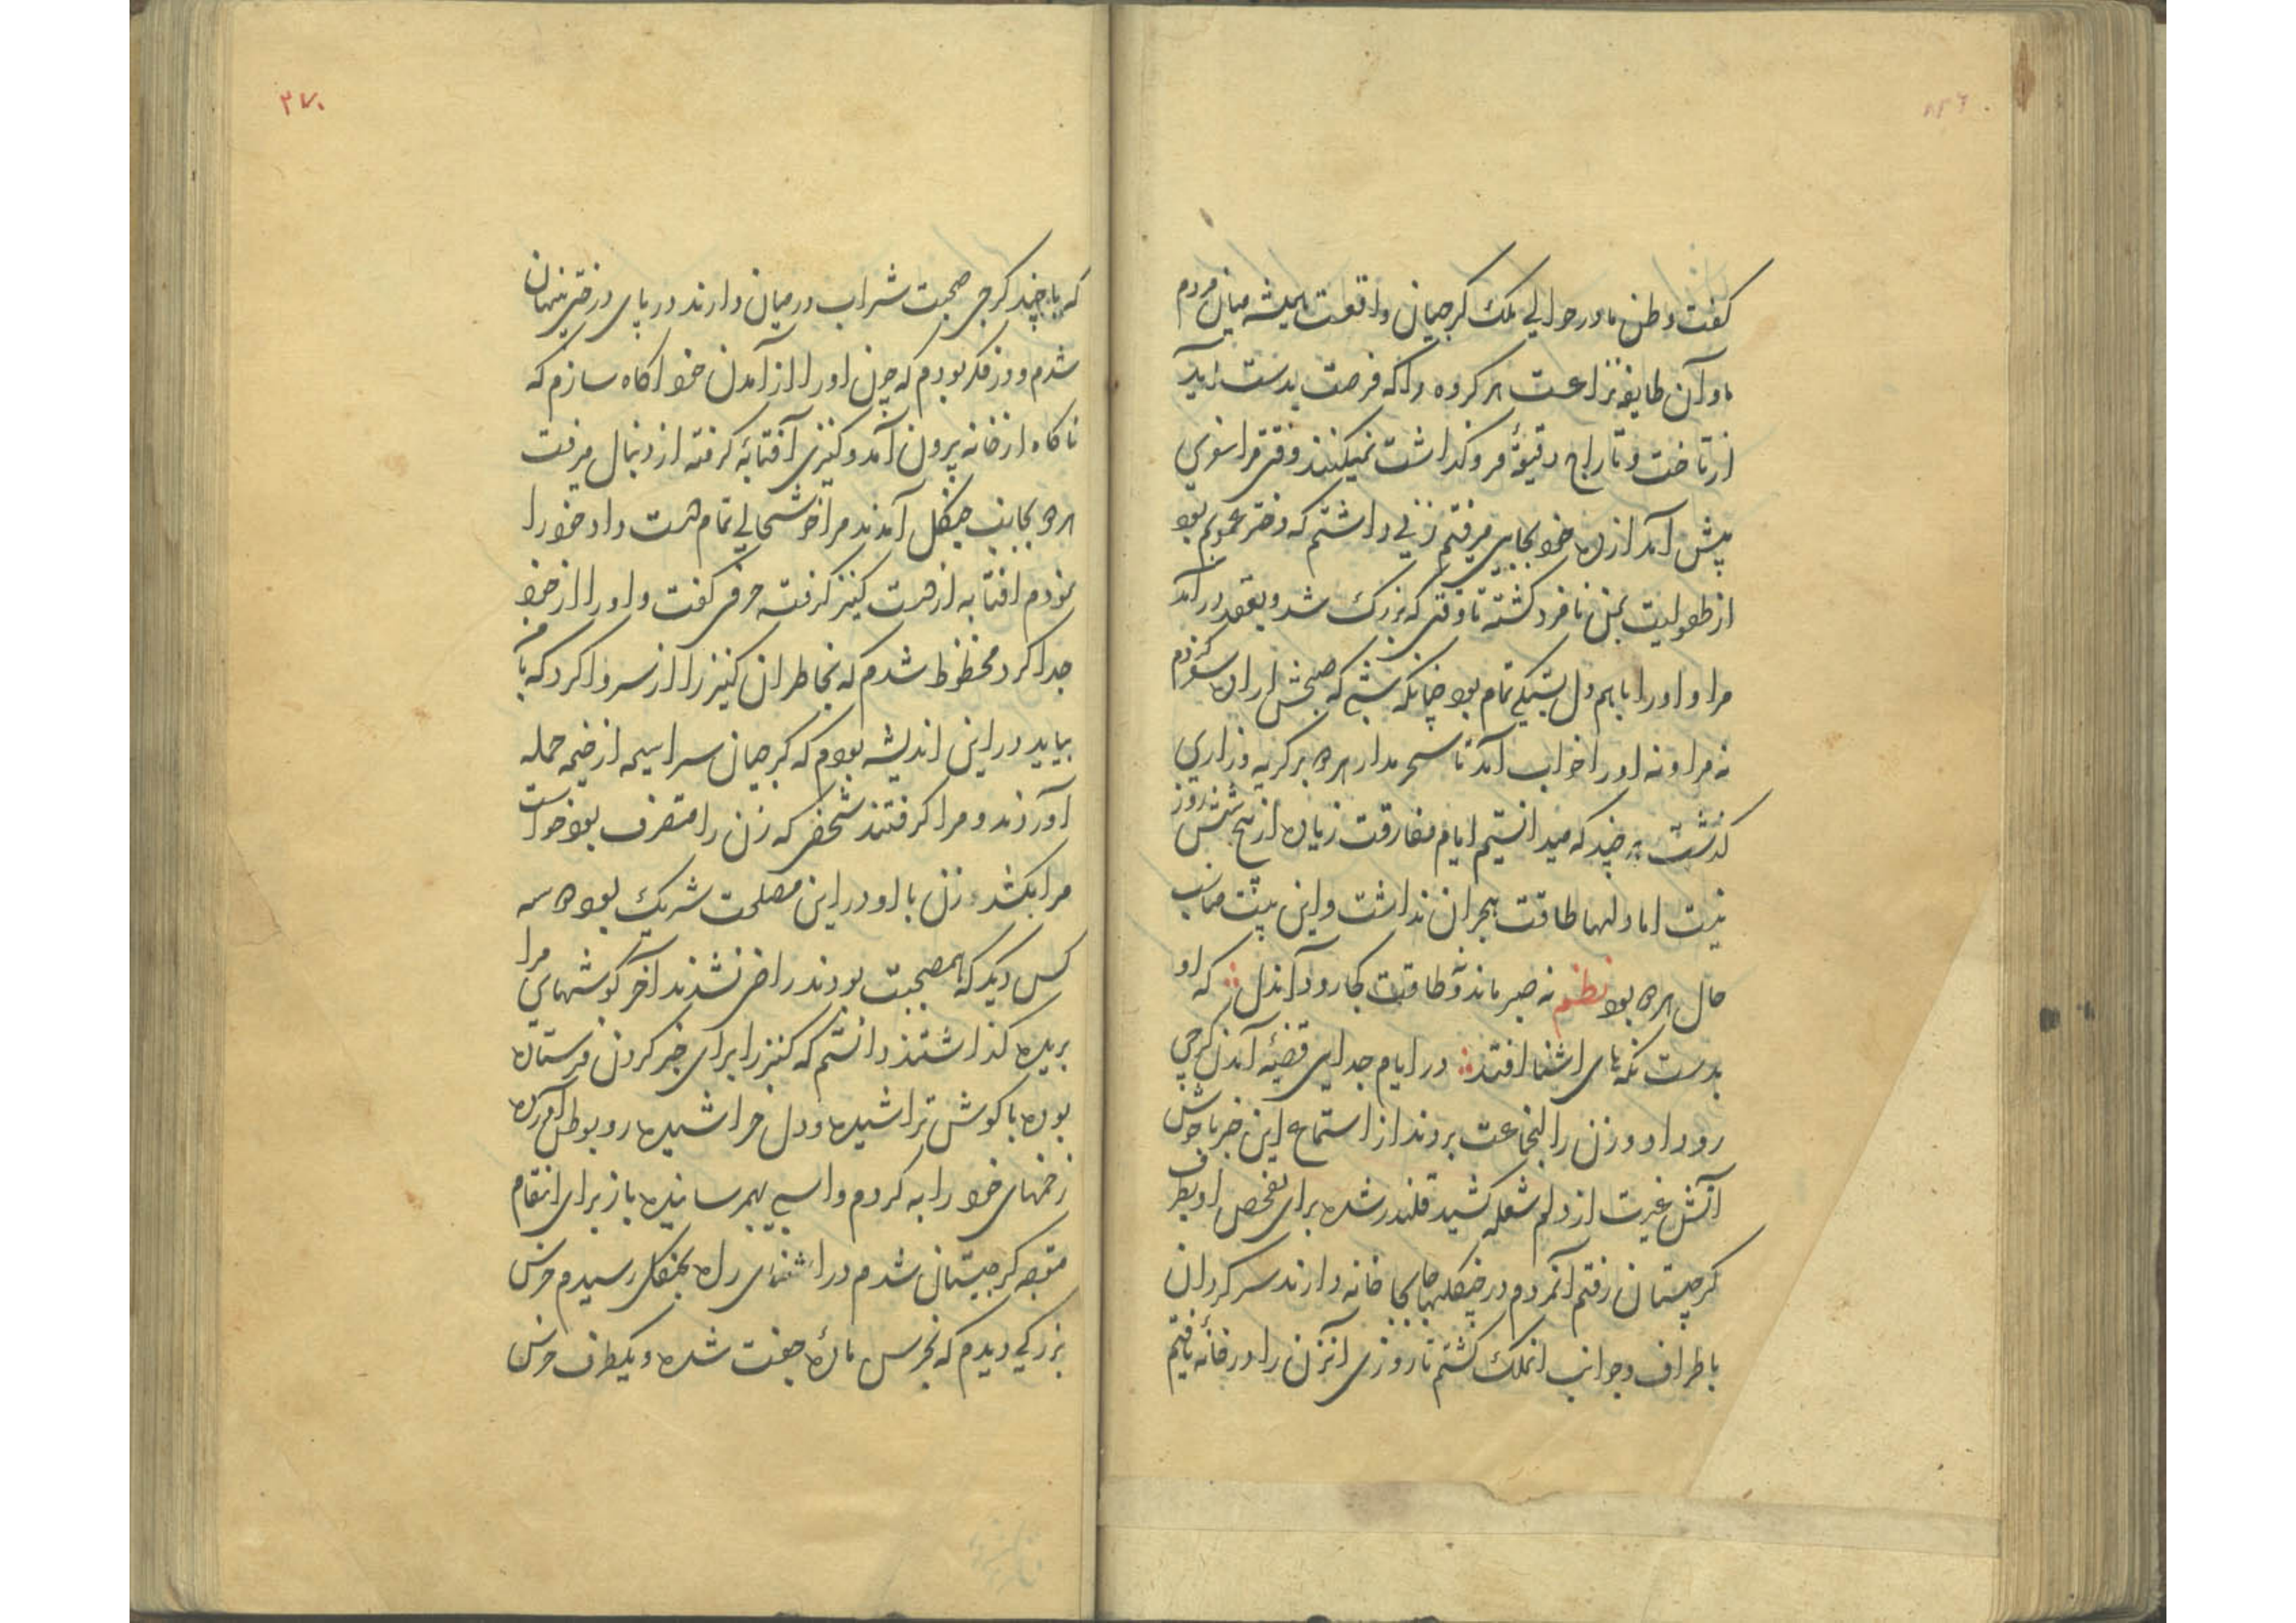 کفت وطن ما در حوالی ملک کرجیان واقعست همیشه میان مردم
ما و آن طایفه نزاعست هر کروه را که فرصت بدست اید
از تاخت و تاراج دقیقهٔ فرو کذاشت نمیکنند وقتی مرا سفری
پیش آمد از ده خود بجایی میرفتم زنی داشتم که دختر عمویم بود
از طفولیت بمن نامزد کشته تا وقتی که بزرک شد و بعقد در آمد
مرا و او را با هم دل بستکی تمام بود چنانکه شبی که صبحش اراده سفر کردم
نه مرا و نه او را خواب آمد تا سحر مدار همه بر کریه و زاری
کذشت هر چند که میدانستیم ایام مفارقت زیاده از پنج شش روز
نیست اما دلها طاقت هجران نداشت و این بیت مناسب
حال همه بود نظم نه صبر ماند و نه طاقت کجا رود آندل که او
بدست نکه‌های اشنا افتد در ایام جدایی قضیهٔ آمدن کرجی
رو داد و زن را انجماعت بردند از استماع این خبر ناخوش
آتش غیرت از دلم شعله کشید قلندر شده برای تفحص او بطرف
کرجستان رفتم آنمردم در جنکلها جابجا خانه دارند سرکردان
باطراف و جوانب انملک کشتم تا روزی آنزن را در خانهٔ یافتم
۲۷۰
که با چند کرجی صحبت شراب در میان دارند در پای درختی پنهان
شدم و در فکر بودم که چون او را از آمدن خود اکاه سازم که
ناکاه از خانه بیرون آمد و کنیزی آفتابهٔ کرفته از دنبال میرفت
همه بجانب جنکل آمدند مرا خوشحالی تمام دست داد خود را
نمودم افتابه از دست کنیز کرفته حرفی کفت و او را از خود
جدا کرد محظوظ شدم که بخاطر ان کنیز را از سر وا کرد که با من
بیاید در این اندیشه بودم که کرجیان سراسیمه از خیمه حمله
آوردند و مرا کرفتند شخصی که زن را متصرف بود خواست
مرا بکشد زن با او در این مصلحت شریک بود دو سه
کس دیکر که همصحبت بودند راضی نشدند آخر کوشهای مرا
بریده کذاشتند دانستم که کنیز را برای خبر کردن فرستاده
بوده با کوش تراشیده و دل خراشیده رو بوطن آورده
زخمهای خود را به کردم و اسبی بهمرسانیده باز برای انتقام
متوجه کرجستان شدم در اثنای راه بجنکلی رسیدم خرس
بزرکی دیدم که بخرس ماده جفت شده و یکطرف خرس